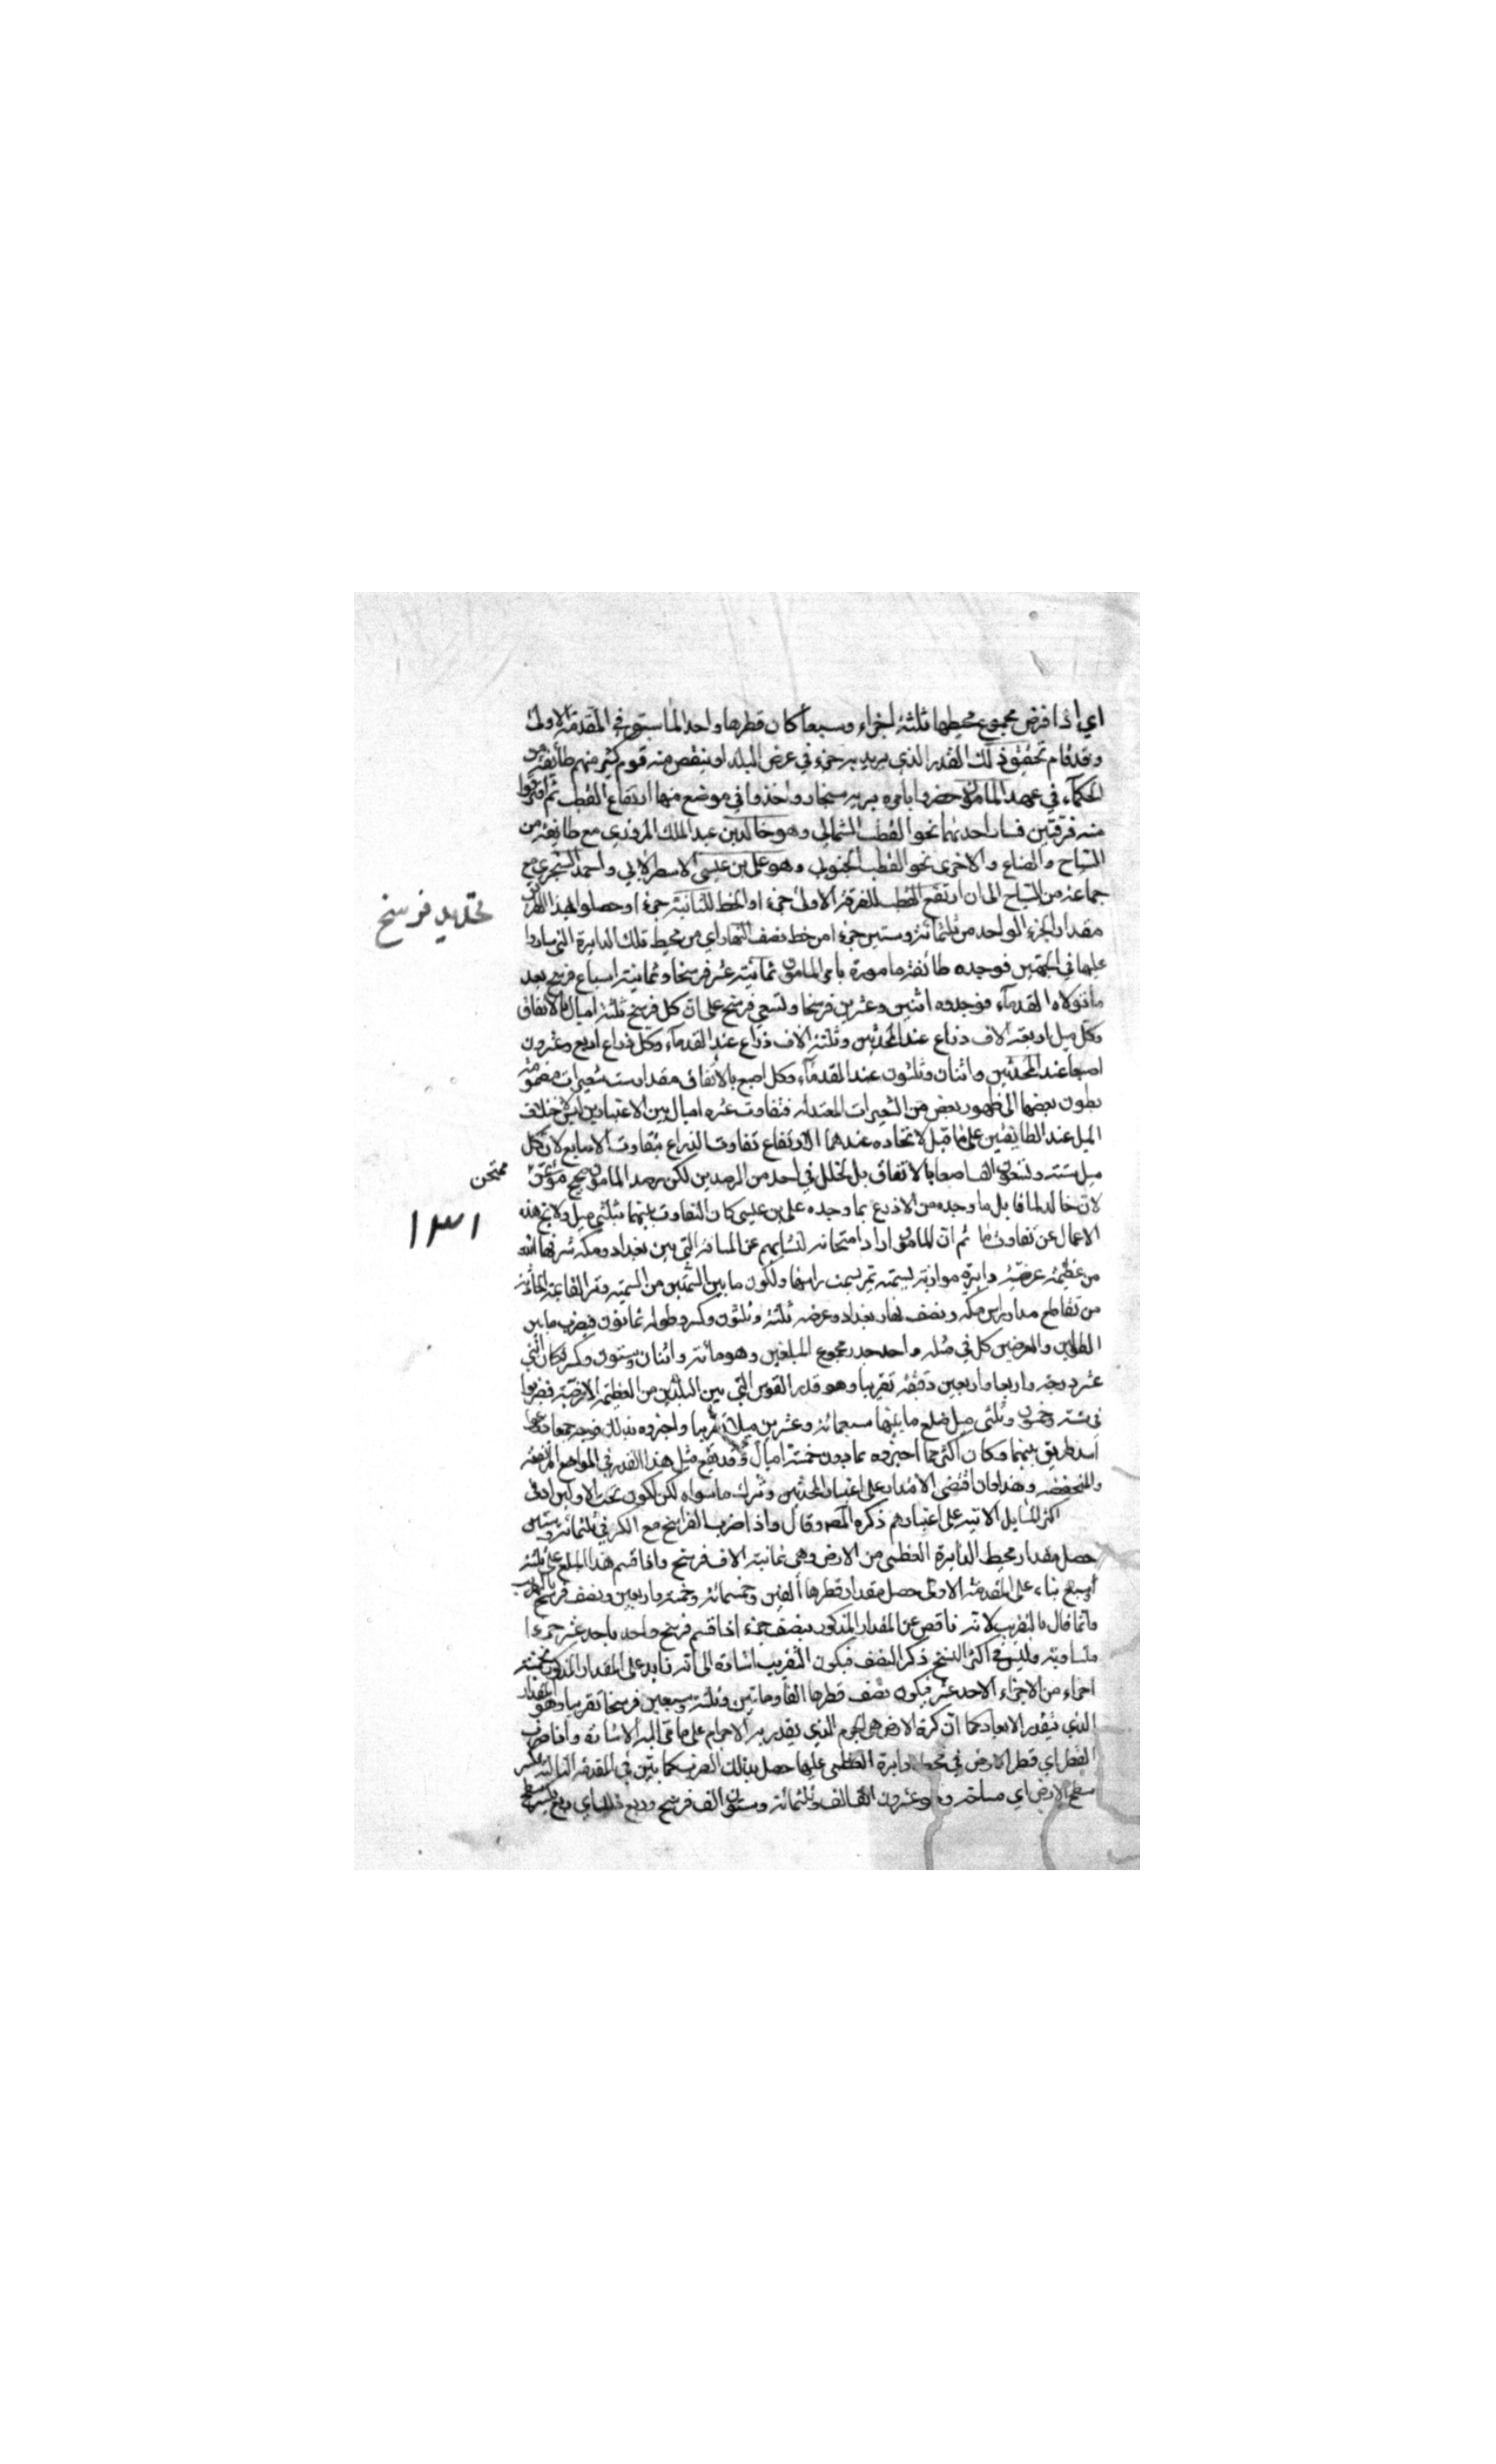 اي اذا فرض مجموع محيطها ثلثة اجزاء وسبعا كان قطرها واحدا لما سبق في المقدمة الاولى
وقد قام بتحقيق ذلك القدر الذي يزيد به جزء في عرض البلد او ينقص منه قوم كثير منهم طائفة من
الحكماء في عهد المامون حضروا بامره برية سنجار واخذوا في موضع منها ارتفاع القطب ثم افترقوا
منه فرقتين فسار احديهما نحو القطب الشمالي وهو خالد بن عبد الملك المروذي مع طايفة من
المساح والصناع والاخرى نحو القطب الجنوبي وهو علي بن عيسى الاسطرلابي واحمد السنجري مع
جماعة من المساح الى ان ارتفع القطب للفرقة الاولى جزءا وانحط للثانية جزءا وحصلوا بهذا الطريق
مقدار الجزء الواحد من ثلثمائة وستين جزءا من خط نصف النهار اي من محيط تلك الدايرة التي ساروا
عليها في الجهتين فوجده طائفة مامورة بامر المامون ثمانية عشر فرسخا وثمانية اسباع فرسخ بعد
ما تولاه القدماء فوجدوه اثنين وعشرين فرسخا وتسعي فرسخ على ان كل فرسخ ثلثة اميال بالاتفاق
وكل ميل اربعة الاف ذراع عند المحدثين وثلثة الاف ذراع عند القدماء وكل ذراع اربع وعشرون
اصبعا عند المحدثين واثنان وثلثون عند القدماء وكل اصبع بالاتفاق مقدار ست شعيرات مضمومة
بطون بعضها الى ظهور بعض من الشعيرات المعتدلة فتفاوت عشرة اميال بين الاعتبارين ليس لاختلاف
الميل عند الطايفتين على ما قيل لاتحاده عندهما لارتفاع تفاوت الذراع بتفاوت الاصابع لان كل
ميل ستة وتسعون الف اصبعا بالاتفاق بل لخلل في احد من الرصدين لكن رصد المامون صحيح موثق
ممتحن
لان خالدا لما قابل ما وجده من الاذرع بما وجده علي بن عيسى كان التفاوت بينهما ثلثي ميل ولا يخ هذه
الاعمال عن تفاوت ما ثم ان المامون اراد امتحانه لتسايلهم عن المسافة التي بين بغداد ومكة شرفها الله
من عظيمة عرضية دايرة موازية تمر بسمت راسها ولكون ما بين السمتين من
من تقاطع مدار راس مكة ونصف نهار بغداد وعرضه ثلثة وثلثون وكسر وطوله ثمانون فيضرب ما بين
الطولين والعرضين كل في مثله واحد جدر مجموع المبلغين وهو مائة واثنان وستون وكسر فكان اثني
عشر درجة واربعا واربعين دقيقة تقريبا وهو قدر القوس التي بين البلدين من العظيمة الارضية فضربوا
في ستة وخمسون وثلثي ميل فبلغ ما بينهما سبعمائة وعشرين ميلا تقريبا واخبروه بذلك
اسد طريق بينهما وكان اكثر مما اخبروه بما دون خمسة اميال وقد يقع مثل هذا القدر في المواضع المرتفعة
والمنخفضة وهذا وان اقتضى الاعتداد على اعتبار المحدثين وترك ما سواه لكن لكون بحث الاولين اوفى
اكثر المسايل الاتية على اعتبارهم ذكره المصـ وقال واذا ضرب الفراسخ مع الكسر في ثلثمائة وستين
حصل مقدار محيط الدايرة العظمى من الارض وهي ثمانية الاف فرسخ واذا قسم هذا المبلغ على ثلثة
وسبع بناء على المقدمة الاولى حصل مقدار قطرها الفين وخمسمائة وخمسة واربعين ونصف فرسخ بالتقريب
وانما قال بالتقريب لانه ناقص عن المقدار المذكور بنصف جزء اذا قسم فرسخ واحد باحد عشر جزءا
متساوية وليس في اكثر النسخ ذكر النصف فيكون التقريب اشارة الى انه زايد على المقدار المذكور بخمسة
اجزاء من الاجزاء الاحد عشر فيكون نصف قطرها الفا ومائتين وثلثة وسبعين فرسخا تقريبا وهو المقدار
الذي يقدر الابعاد كما ان كرة الارض هي الجرم الذي يقدر به الاجرام على ما في الاشارة واذا ضرب
القطر اي قطر الارض في محيط دايرة العظمى عليها حصل بذلك الضرب كما تبين في المقدمة الثالثة تكسير
سطح الارض اي مساحته وهو عشرون الف الف وثلثمائة وستون الف فرسخ وربع ذلك اي ربع تكسير سطح
تحديد فرسخ
١٣١